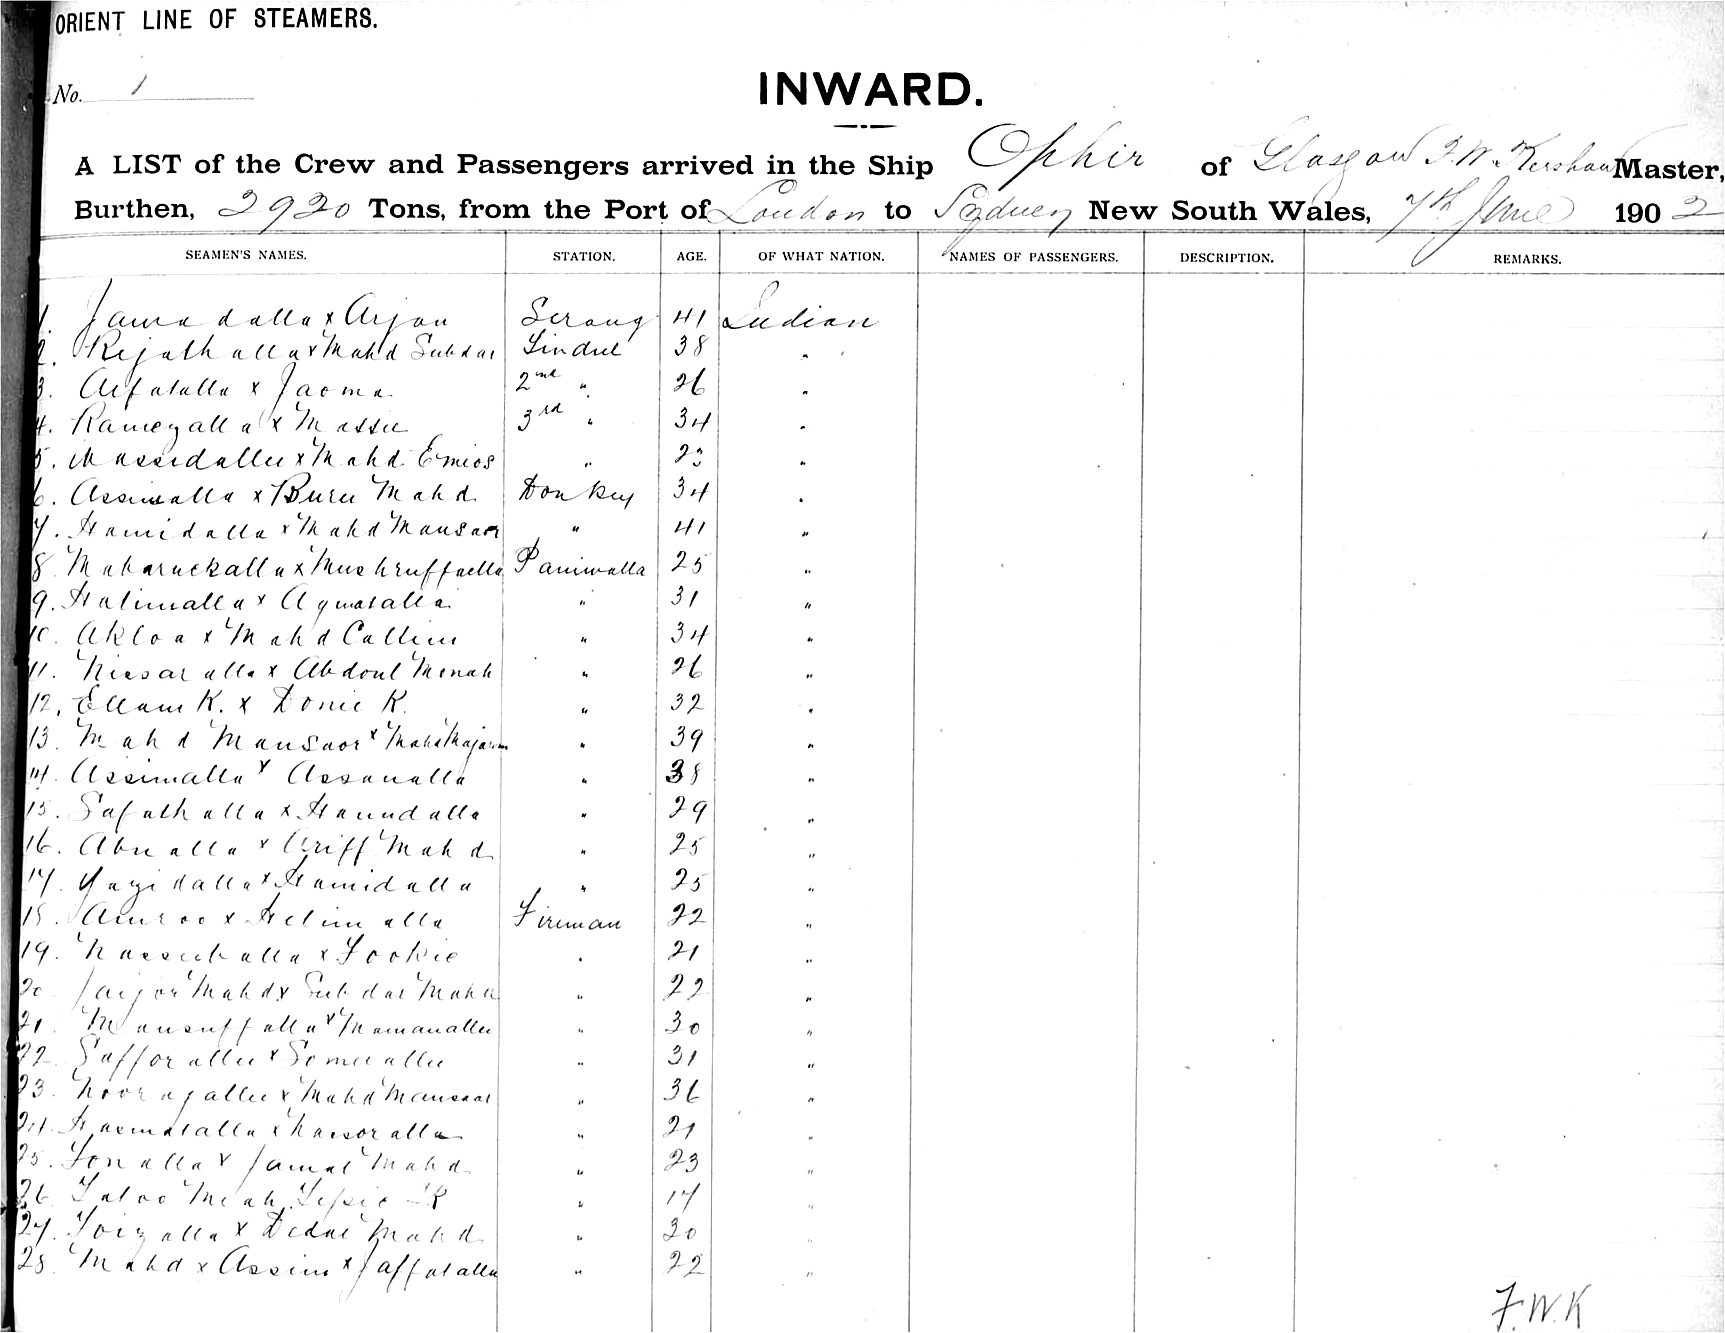 ORIENT LINE OF STEAMERS.
No. 1
INWARD.
A LIST of the Crew and Passengers arrived in the Ship Ophir of Glasgow F. W. Kershaw Master,
Burthen, 2920 Tons, from the Port of London to Sydney New South Wales, 7th June 1902
SEAMEN'S NAMES. STATION. AGE. OF WHAT NATION. NAMES OF PASSENGERS. DESCRIPTION. REMARKS.
1. Jamadalla x Arjan Serang 41 Indian
2. Rejathalla x Mahd Subdar Tindul 38 "
3. Arfatalla x Jaoma 2nd " 26 "
4. Ramezalla x Massu 3rd " 34 "
5. Massidallee x Mahd Emios " 23 "
6. Assimalla x Buru Mahd Donkey 34 "
7. Hamidalla x Mahd Mansaor " 41 "
8 Mabaruckalla x Mushruffaella Paniwalla 25 "
9. Halimalla x Aymatalla " 31 "
10. Akloa x Mahd Callim " 34 "
11. Nissaralla x Abdoul Monah " 26 "
12. Ellam K. x Donie K. " 32 "
13. Mahd Mansaor x Mahd " 39 "
14. Assimalla x Assanalla " 38 "
15. Safathalla x Hamidalla " 29 "
16. Abualla x Ariff Mahd " 25 "
17. Yazidalla x Hamidalla " 25 "
18. Amroo x Helimalla Fireman 22 "
19. Nassuballa x Fookie " 21 "
20 Mahd x Subdar Mahd " 22 "
21. Mansuffalla x Momanallee " 30 "
22 Safforallee x Someallee " 31 "
23. Noorazallee x Mahd Mansaor " 36 "
24. Hasmatalla x Nassoralla " 21 "
25. Tonalla x Jamal Mahd " 23 "
26 Taloo Meah K " 17 "
27. Toizalla x Dedar Mahd " 30 "
28. Mahd x Assim x Jaffatalla " 22 "
F.W.K